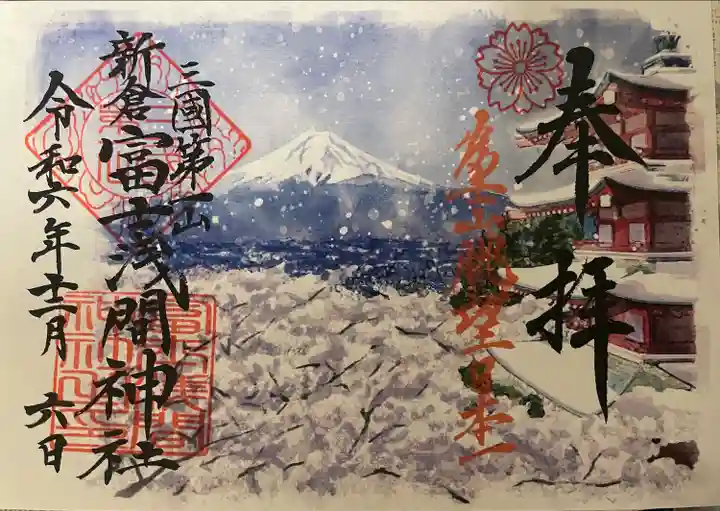 奉拝
富士山眺望日本一
三國第一山
新倉富士浅間神社
令和六年十二月 六日